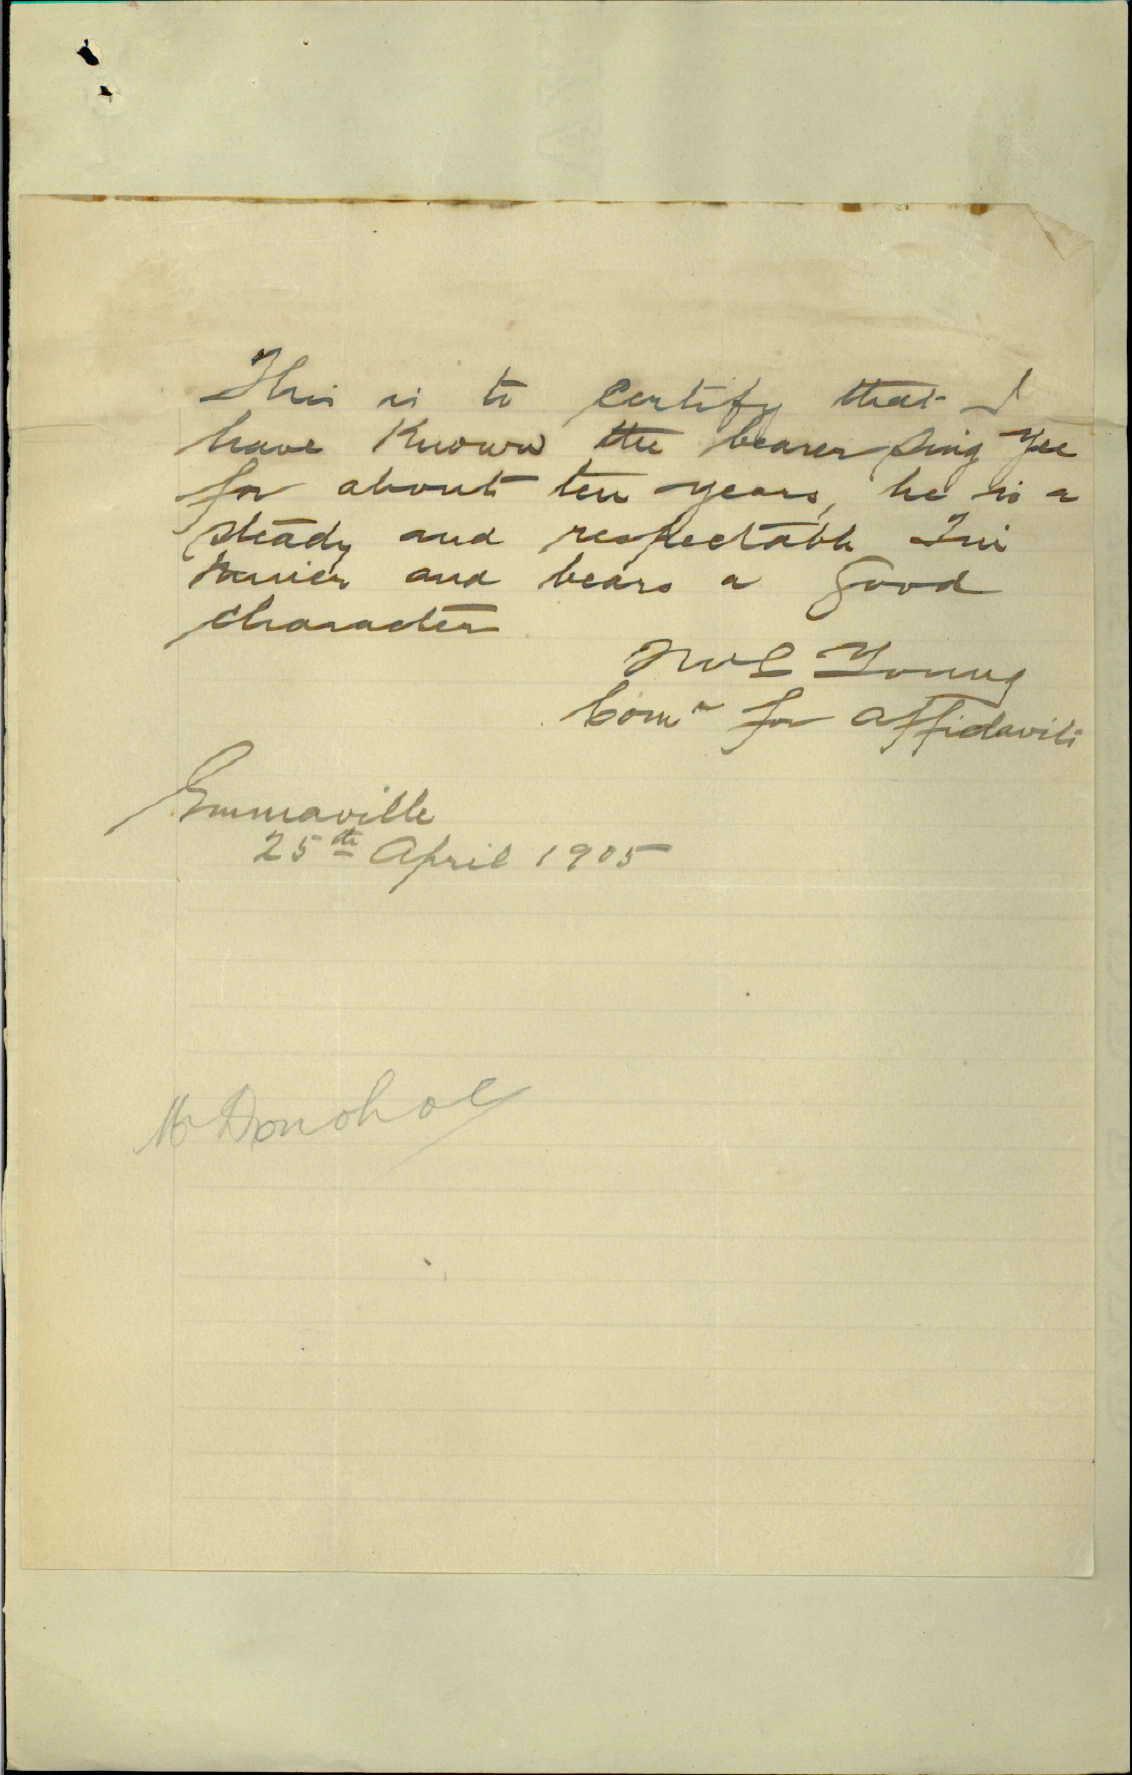 This is to certify that I
have Known the bearer Sing Yee
for about ten years, he is a
steady and respectable Tin
Minier and bears a good
character
Young
Comr for Affidavits
Emmaville
25th April 1905
Donohoe